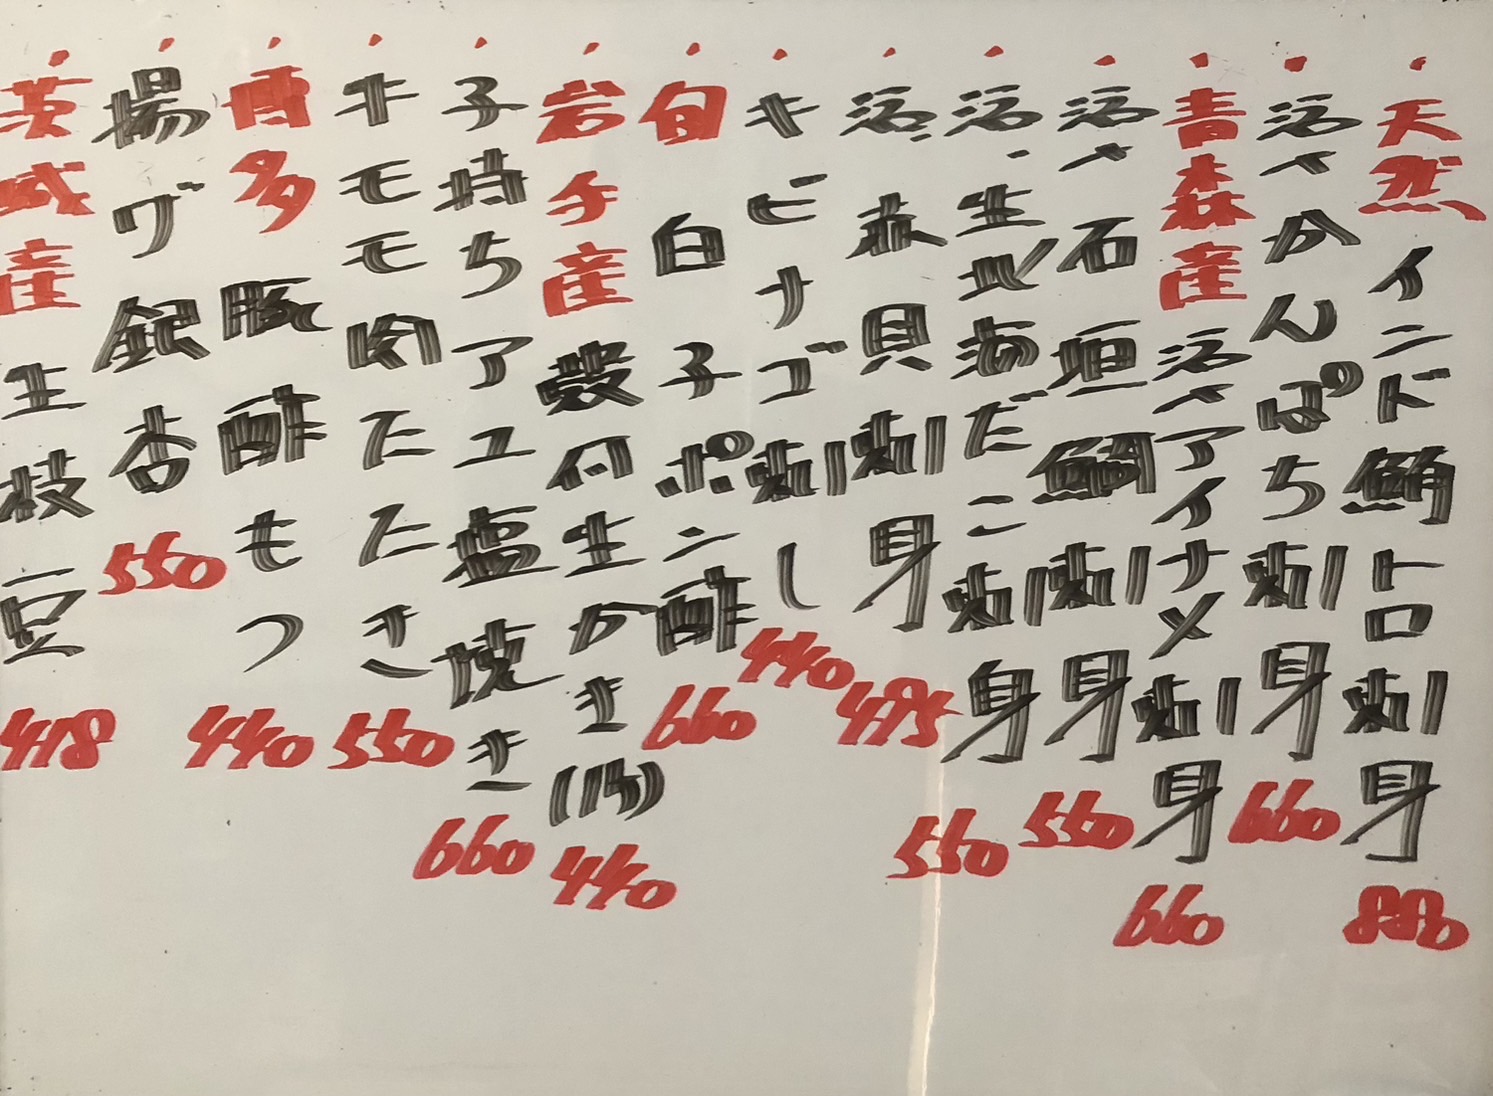 ・天然インド鮪トロ刺身 880
・活〆かんぱち刺身 660
・青森産活〆アイナメ刺身 660
・活〆石垣鯛刺身 550
・活・生地海だこ刺身 550
・活赤貝刺身 495
・キビナゴ刺し 440
・旬白子ポン酢 660
・岩手産殻付生かき 440
・子持ちアユ塩焼き 660
・牛モモ肉たたき 550
・博多豚酢もつ 440
・揚ゲ銀杏 550
・茨城産生枝豆 418